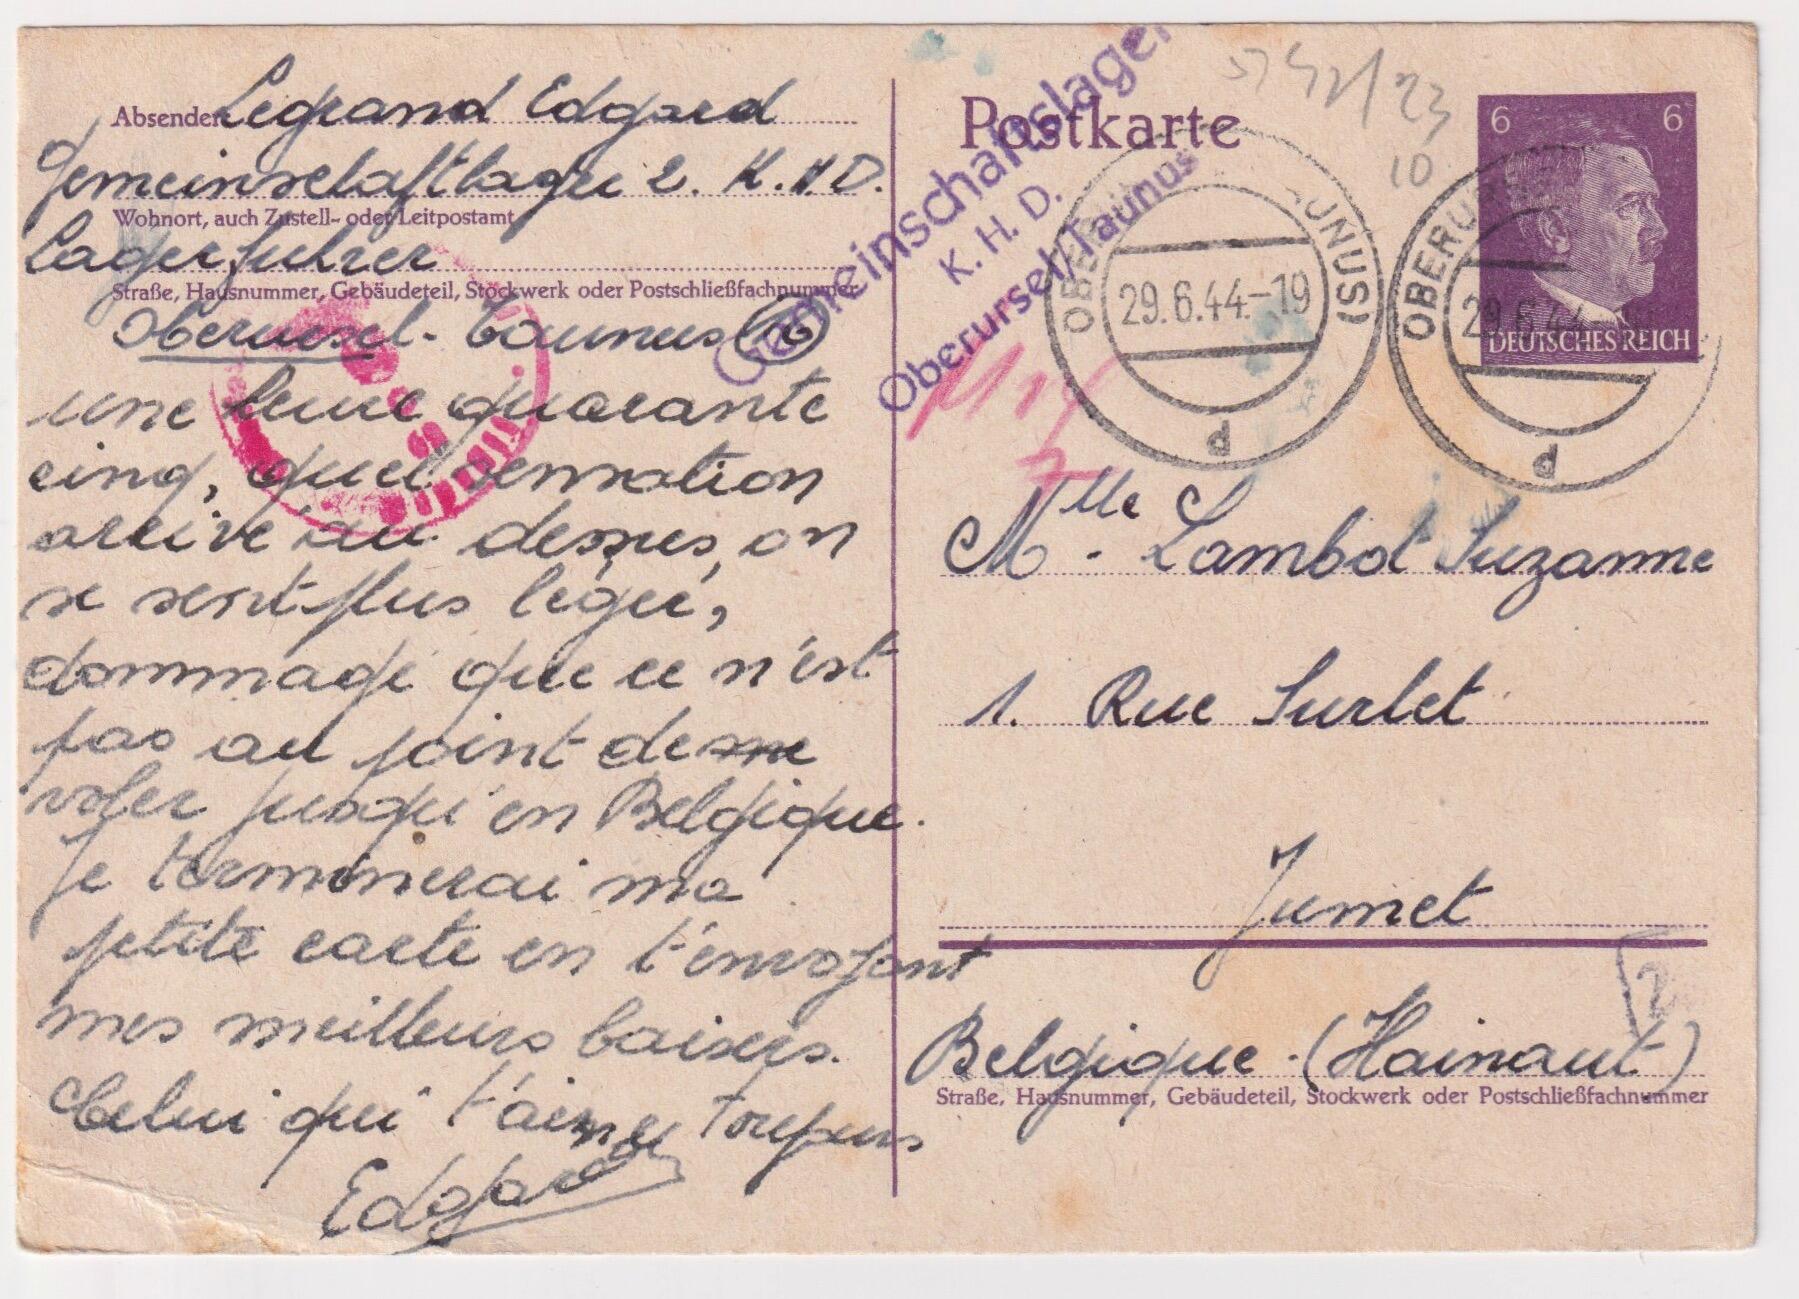 Absender: Legrand Edgard
Gemeinschaftlager 2. K.H.D.
Wohnort, auch Zustell- oder Leitpostamt
Lagerfuhrer
Straße, Hausnummer, Gebäudeteil, Stockwerk oder Postschließfachnummer
Oberursel-Taunus (16)
une heure quarante
cinq, quel sensation
arrivé au dessus, on
se sent plus léger,
dommage que ce n'est
pas au point de
voler jusqu'en Belgique.
Je terminerai ma
petite carte en t'envoyant
mes meilleurs baisers.
Celui qui t'aime Toujours
Edgard
Postkarte
Gemeinschaftslager
K. H. D.
Oberursel/Taunus
OBERURSEL (TAUNUS)
29.6.44.-19
p
OBERURSEL
29.6.44
p
6 6
DEUTSCHES REICH
Mlle. Lambot Suzanne
1. Rue Surlet
Jumet
Belgique. (Hainaut)
Straße, Hausnummer, Gebäudeteil, Stockwerk oder Postschließfachnummer